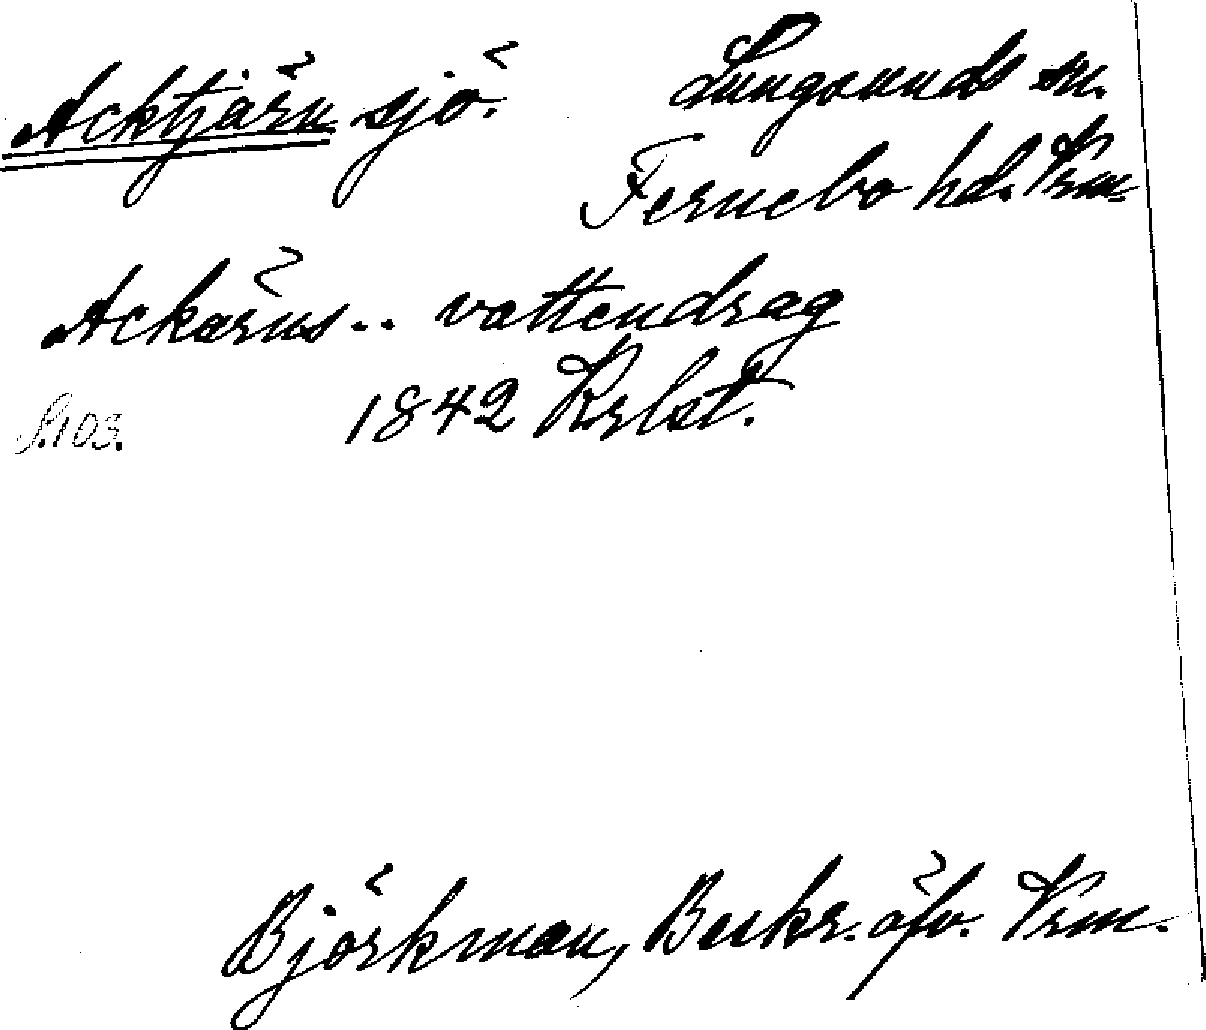 Acktjärn sjö.
Lungsunds sn.
Fernebo hd. Vrm.
Ackärns.. vattendrag
1842 Krlst.
S.103.
Björkman, Beskr. öfv. Vrm.